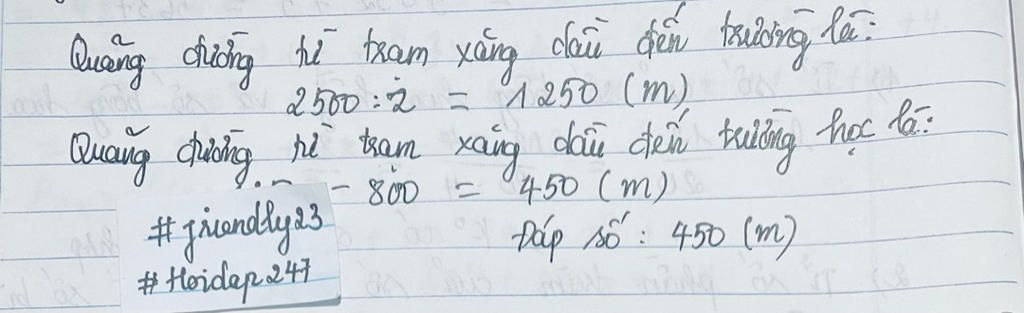 Quãng đường từ trạm xăng dầu đến trường là:
2500 : 2 = 1250 (m)
Quãng đường từ trạm xăng dầu đến trường học là:
- 800 = 450 (m)
#friendly23
Đáp số : 450 (m)
#Hoidap247